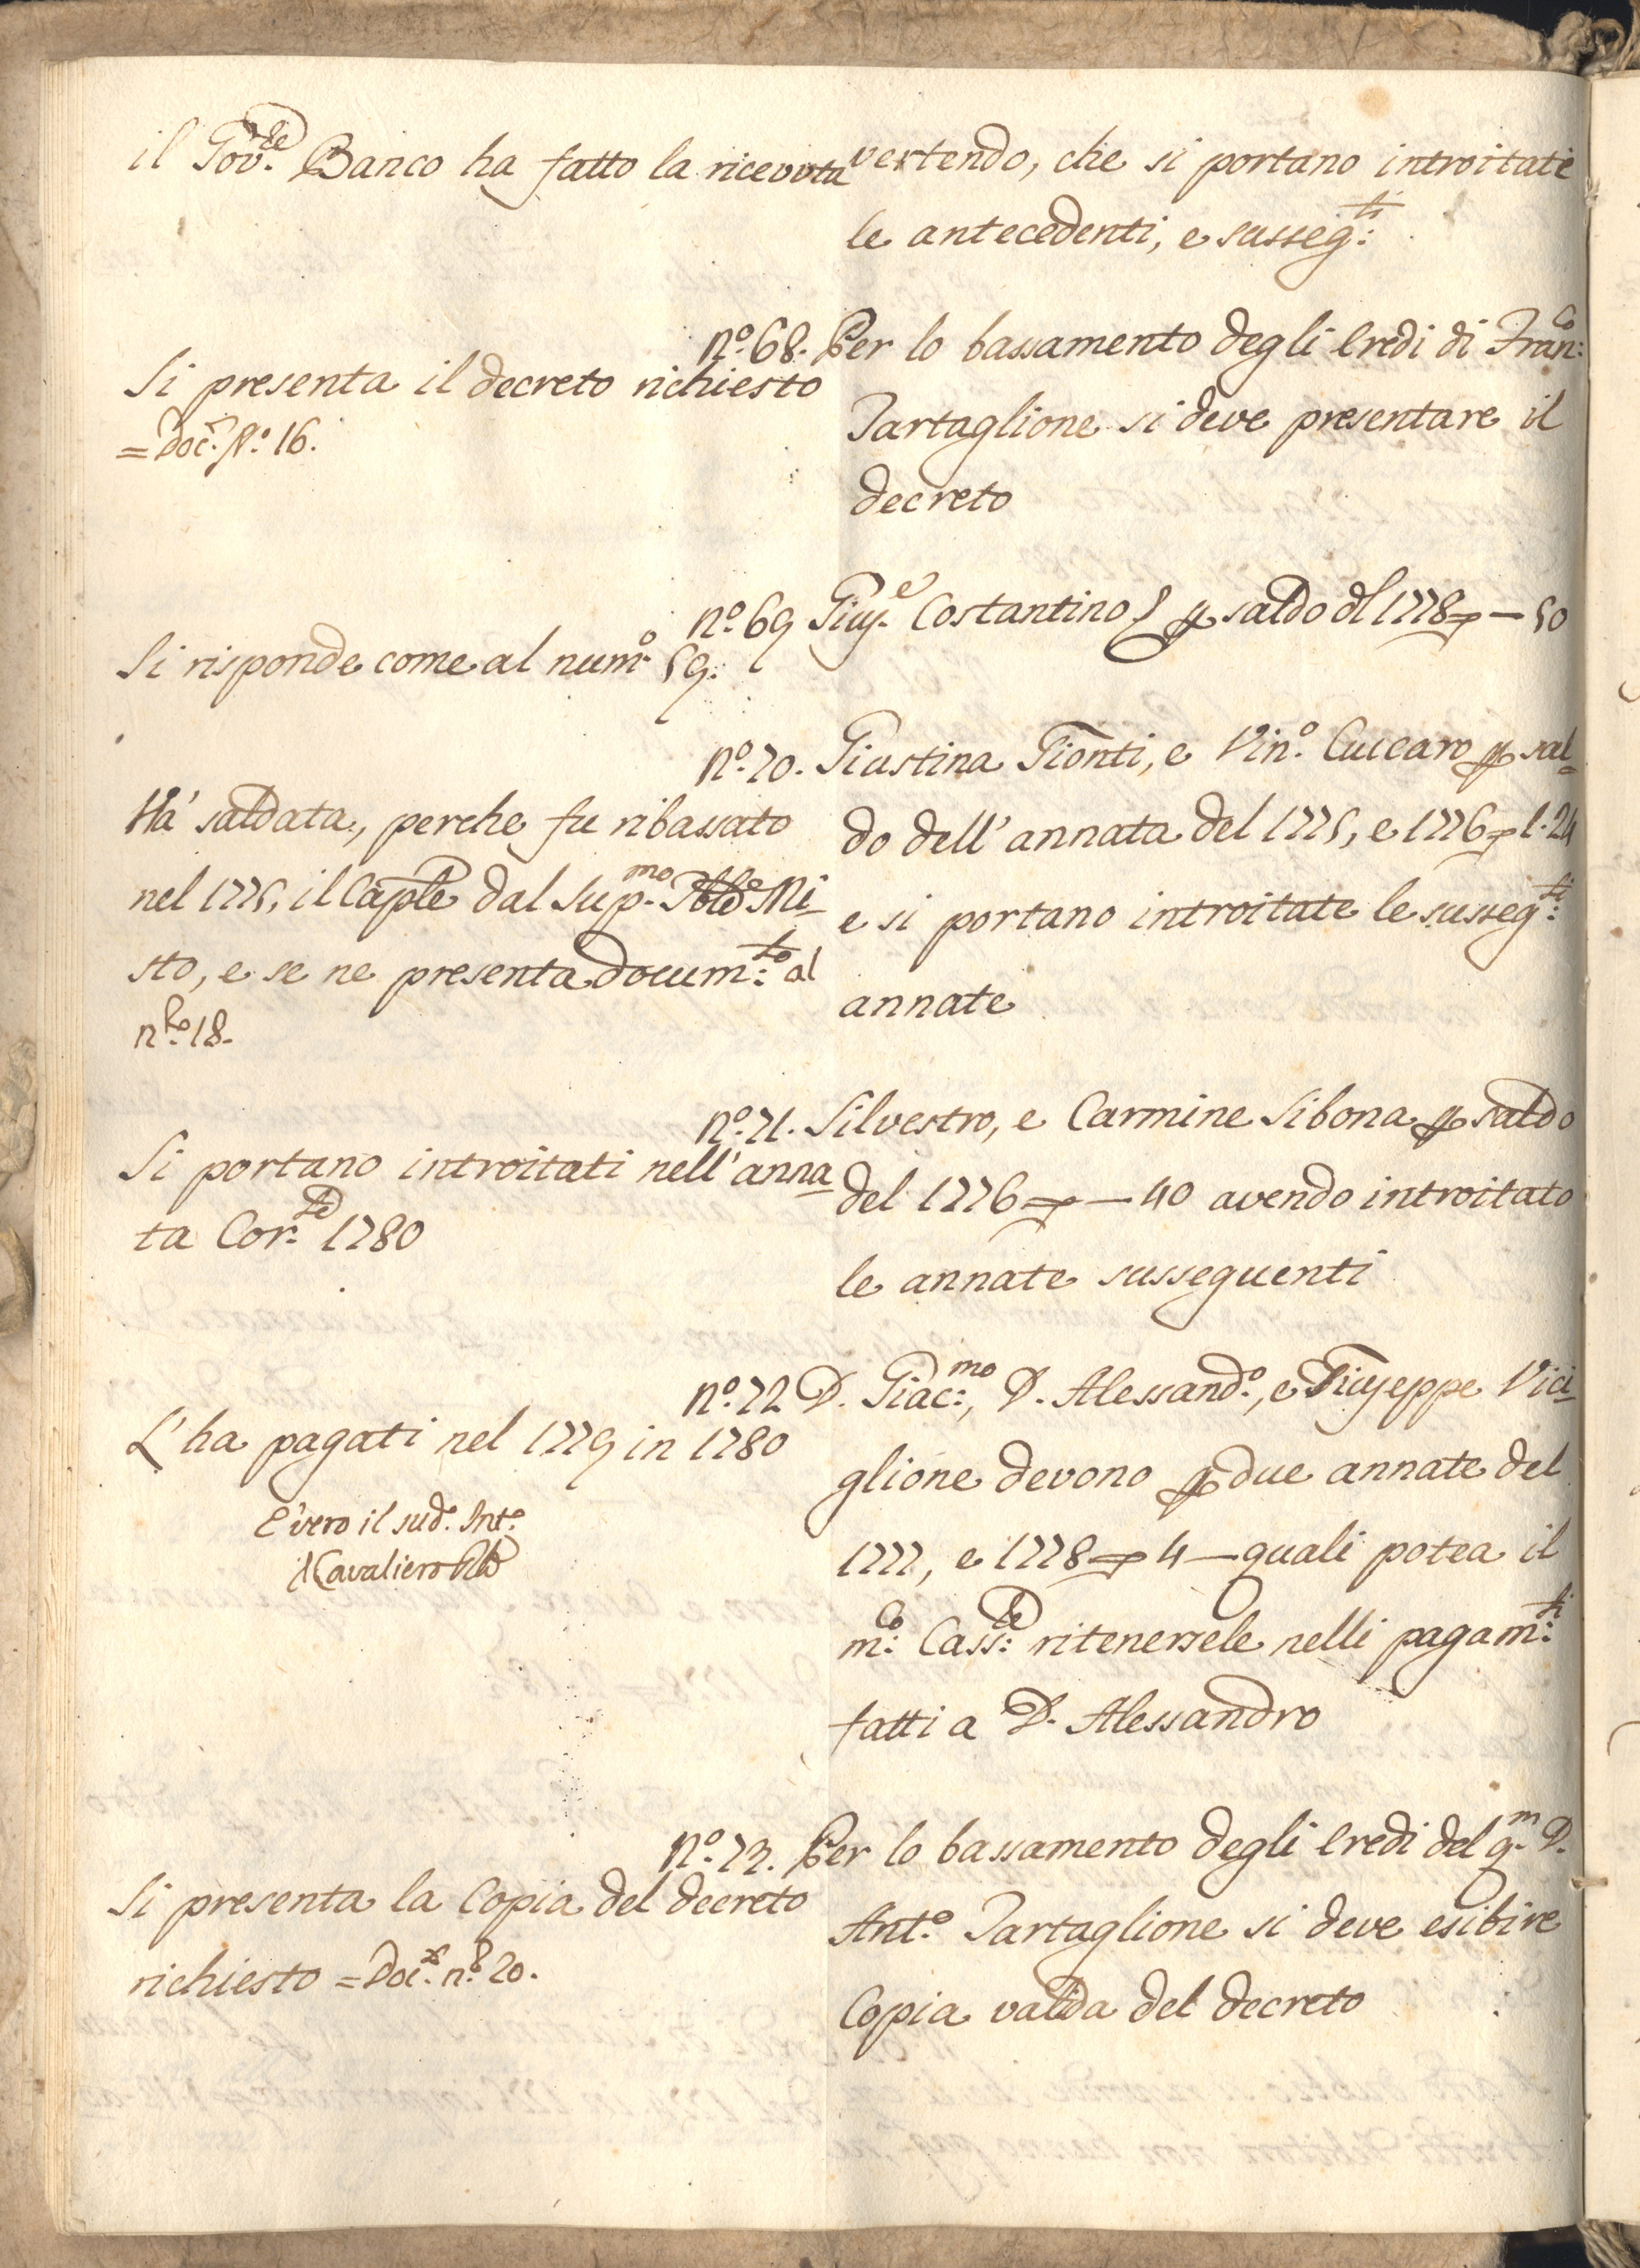 il Gov.te Banco ha fatto la ricevuta
vertendo, che si portano introitate
le antecedenti, e susseg:ti
n.o 68. Per lo bassamento degli Eredi di Fran:co
Tartaglione si deve presentare il
decreto
Si presenta il decreto richiesto
= Doc: N.o 16.
n.o 69 Gius.e Costantino saldo dl 1778 — 50
Si risponde come al num.o 59.
n.o 70. Giustina Gionti, e Vin.o Cuccaro sal=
do dell'annata del 1775, e 1776 1.24
e si portano introitate le susseg:ti
annate
Ha' saldata, perche fu ribassato
nel 1775, il Cap.le dal Sup.mo Mi=
sto, e se ne presenta docum:to al
n.ro 18.
n.o 71. Silvestro, e Carmine Sibona saldo
del 1776 — 40 avendo introitato
le annate susseguenti
Si portano introitati nell'anna=
ta Cor.te 1780
n.o 72 D. Giac:mo, D. Alessand.o, e Giuseppe Vici=
glione devono due annate del
1777, e 1778 4 — quali potea il
m:co Cass:re ritenersele nelli pagam:ti
fatti a D. Alessandro
L'ha pagati nel 1779 in 1780
E' vero il sud.o Int.o
Cavaliero
n.o 73. Per lo bassamento degli Eredi del q.m D.
Ant.o Tartaglione si deve esibire
Copia valida del decreto
Si presenta la Copia del decreto
richiesto = Doc: n.o 20.